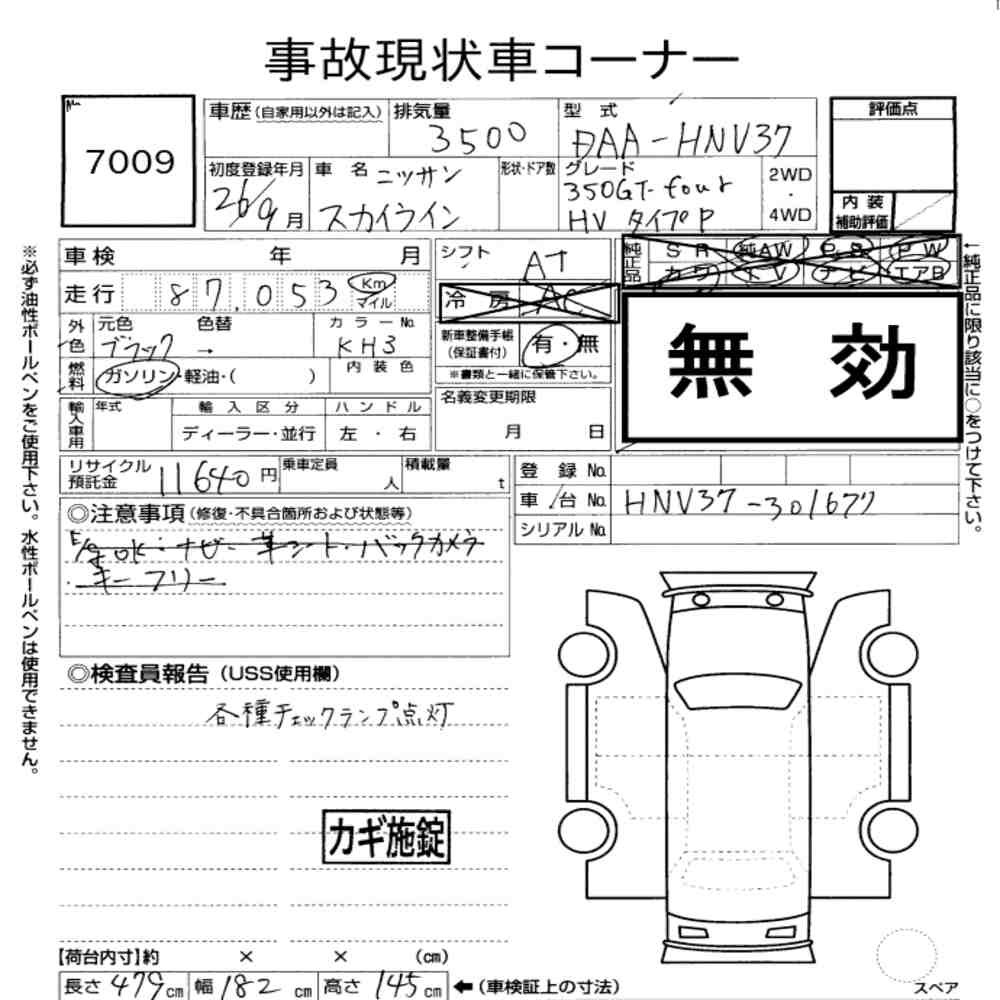 事故現状車コーナー
7009
車歴(自家用以外は記入)
排気量
3500
型 式
DAA-HNV37
評価点
初度登録年月
26/9月
車 名
ニッサン
スカイライン
形状・ドア数
グレード
350GT-four
HV タイプP
2WD
・
4WD
内 装
補助評価
車検 年 月
走行 87,053 Km
マイル
シフト
AT
冷 房 AC
純正品
S R 純AW P S P W
カワ T V ナビ エアB
無 効
外色
元色 色替
ブラック →
カラーNo.
KH3
新車整備手帳
(保証書付)
有・無
※書類と一緒に保管下さい。
燃料
ガソリン・軽油・( )
内 装 色
輸入車用
年式
輸 入 区 分
ディーラー・並行
ハ ン ド ル
左 ・ 右
名義変更期限
月 日
リサイクル
預託金
11640円
乗車定員
人
積載量
t
登 録 No.
車 台 No. HNV37-301677
シリアル No.
◎注意事項(修復・不具合箇所および状態等)
E/g OK・ナビ・革シート・バックカメラ
・キーフリー
◎検査員報告(USS使用欄)
各種チェックランプ点灯
カギ施錠
【荷台内寸】約 × × (cm)
長さ 479cm 幅 182cm 高さ 145cm ←(車検証上の寸法)
スペア
※必ず油性ボールペンをご使用下さい。水性ボールペンは使用できません。
←純正品に限り該当に○をつけて下さい。